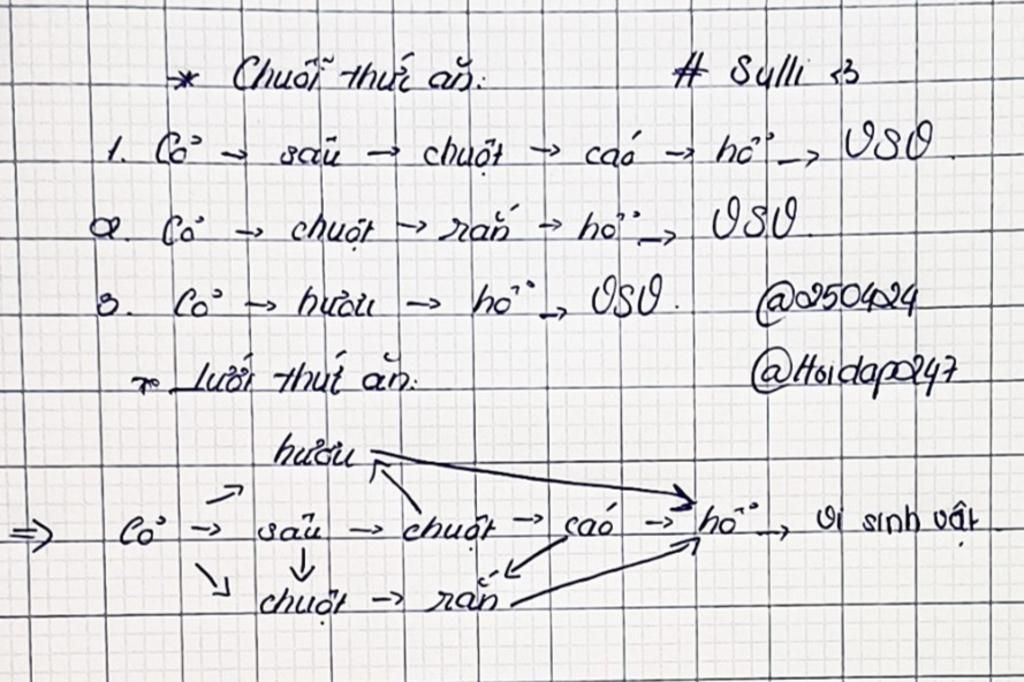 * Chuỗi thức ăn: # Sylli <3
1. Cỏ → sâu → chuột → cáo → hổ → VSV
2. Cỏ → chuột → rắn → hổ → VSV.
3. Cỏ → hươu → hổ → VSV. @250424
* Lưới thức ăn: @Hoidap247
hươu
⇒ Cỏ → sâu → chuột → cáo → hổ → vi sinh vật
chuột → rắn